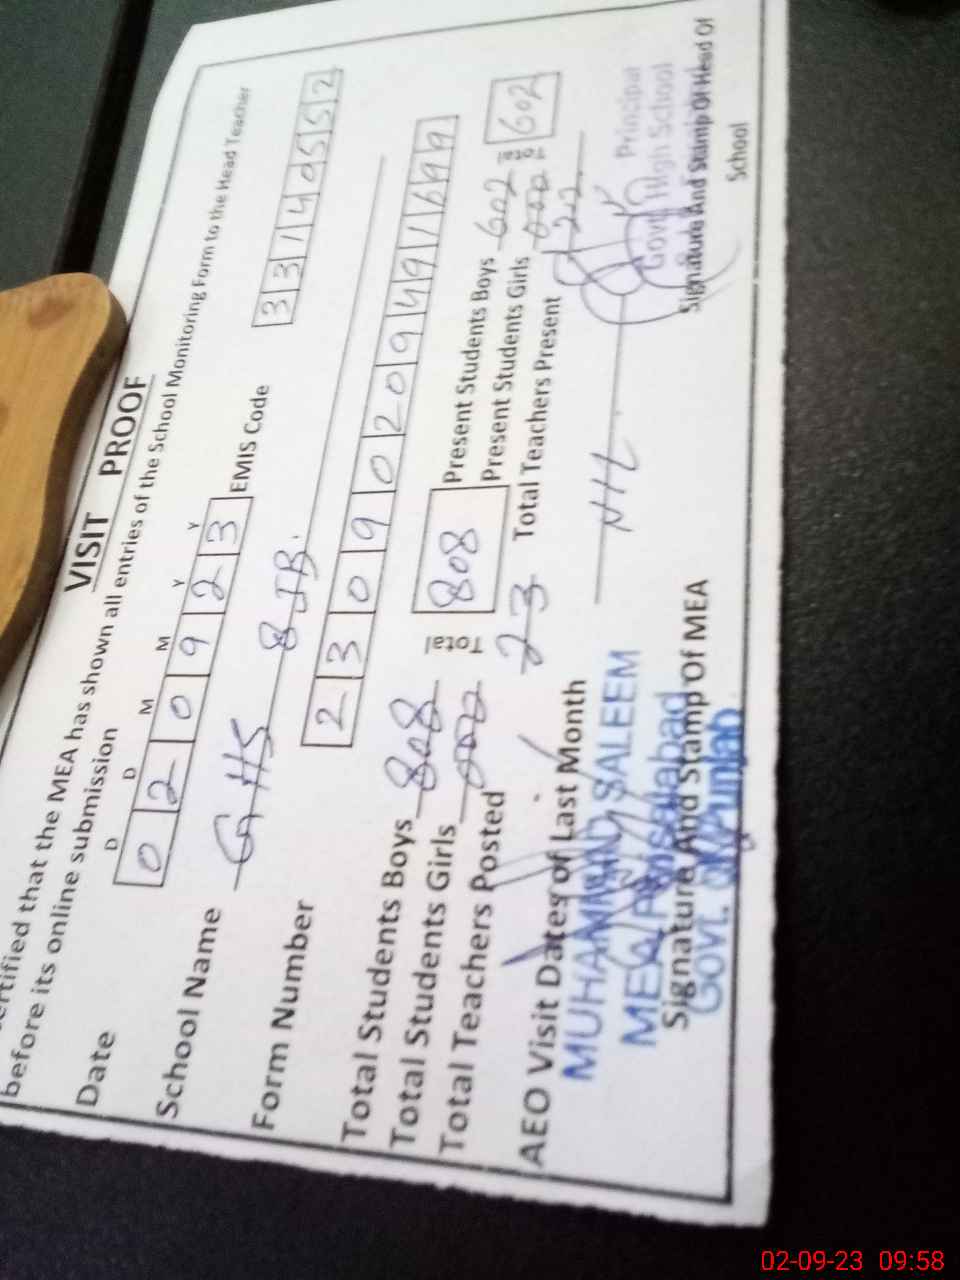 VISIT PROOF
ertified that the MEA has shown all entries of the School Monitoring Form to the Head Teacher
before its online submission
D D M M Y Y
Date 0 2 0 9 2 3 EMIS Code 3 3 1 4 0 5 5 2
School Name G HS 8 JB.
Form Number 2 3 0 9 0 2 0 9 4 9 1 6 9 9
Total Students Boys 808 Total 808 Present Students Boys 602 Total 602
Total Students Girls 000 Present Students Girls 000
Total Teachers Posted 23 Total Teachers Present 22
AEO Visit Dates of Last Month NIL
MUHAMMAD SALEEM
MEA Faisalabad
Govt. Of Punjab
Signature And Stamp Of MEA
Principal
Govt. High School
Signature And Stamp Of Head Of
School
02-09-23 09:58